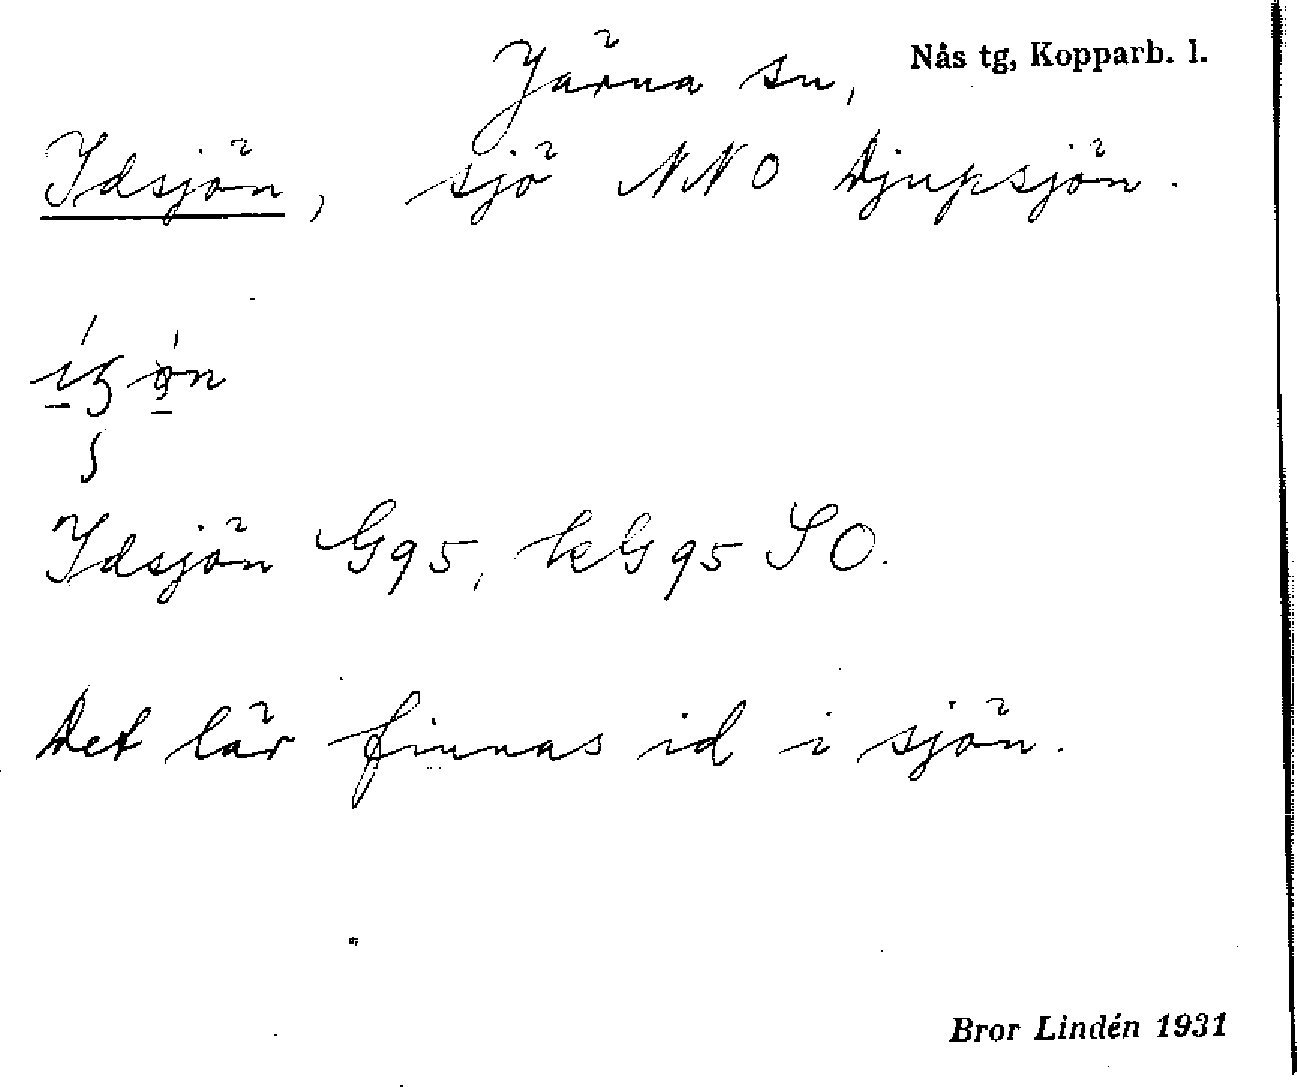 Järna sn, Nås tg, Kopparb. l.
Idsjön, sjö NNO Djupsjön.
Idsjön G95, kG95 SO.
Det lär finnas id i sjön.
Bror Lindén 1931